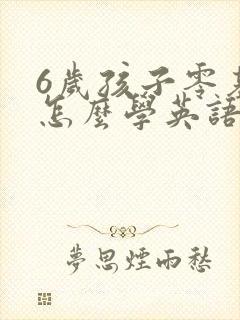 6歲孩子零基
怎麼學英語
夢思煙雨愁